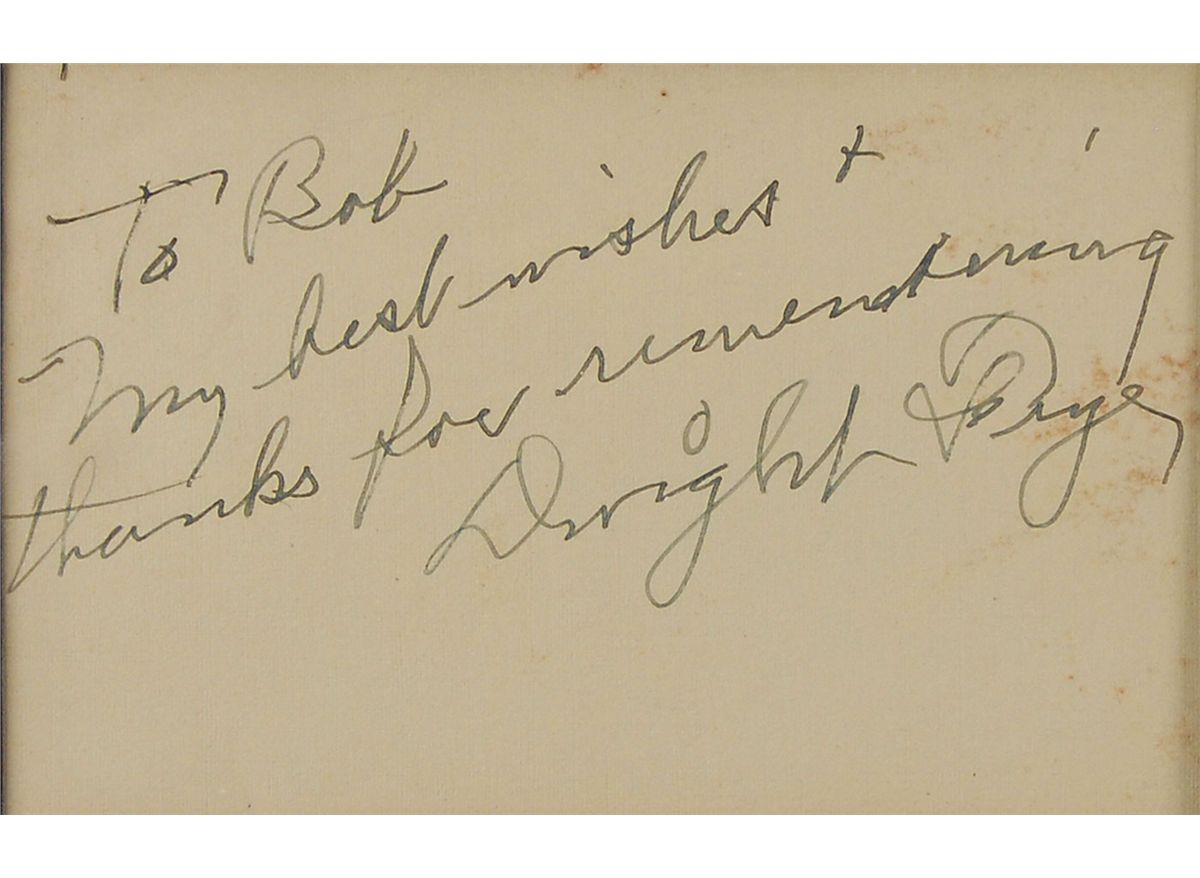 To Bob
My best wishes +
thanks for remembering
Dwight Frye